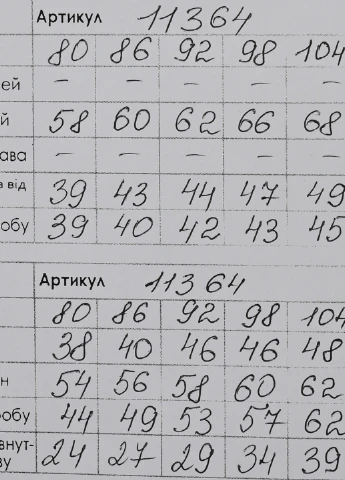 Артикул 11364
80 86 92 98 104
ей — — — — —
й 58 60 62 66 68
ава — — — — —
від 39 43 44 47 49
обу 39 40 42 43 45
Артикул 11364
80 86 92 98 104
38 40 46 46 48
н 54 56 58 60 62
обу 44 49 53 57 62
внут-
ву 24 27 29 34 39